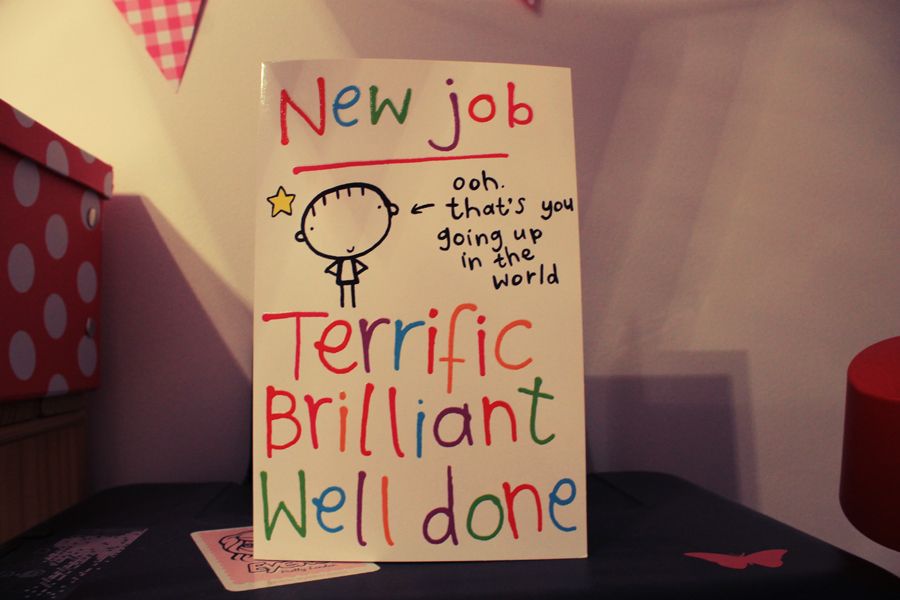 New job
ooh.
that's you
going up
in the
world
Terrific
Brilliant
Well done